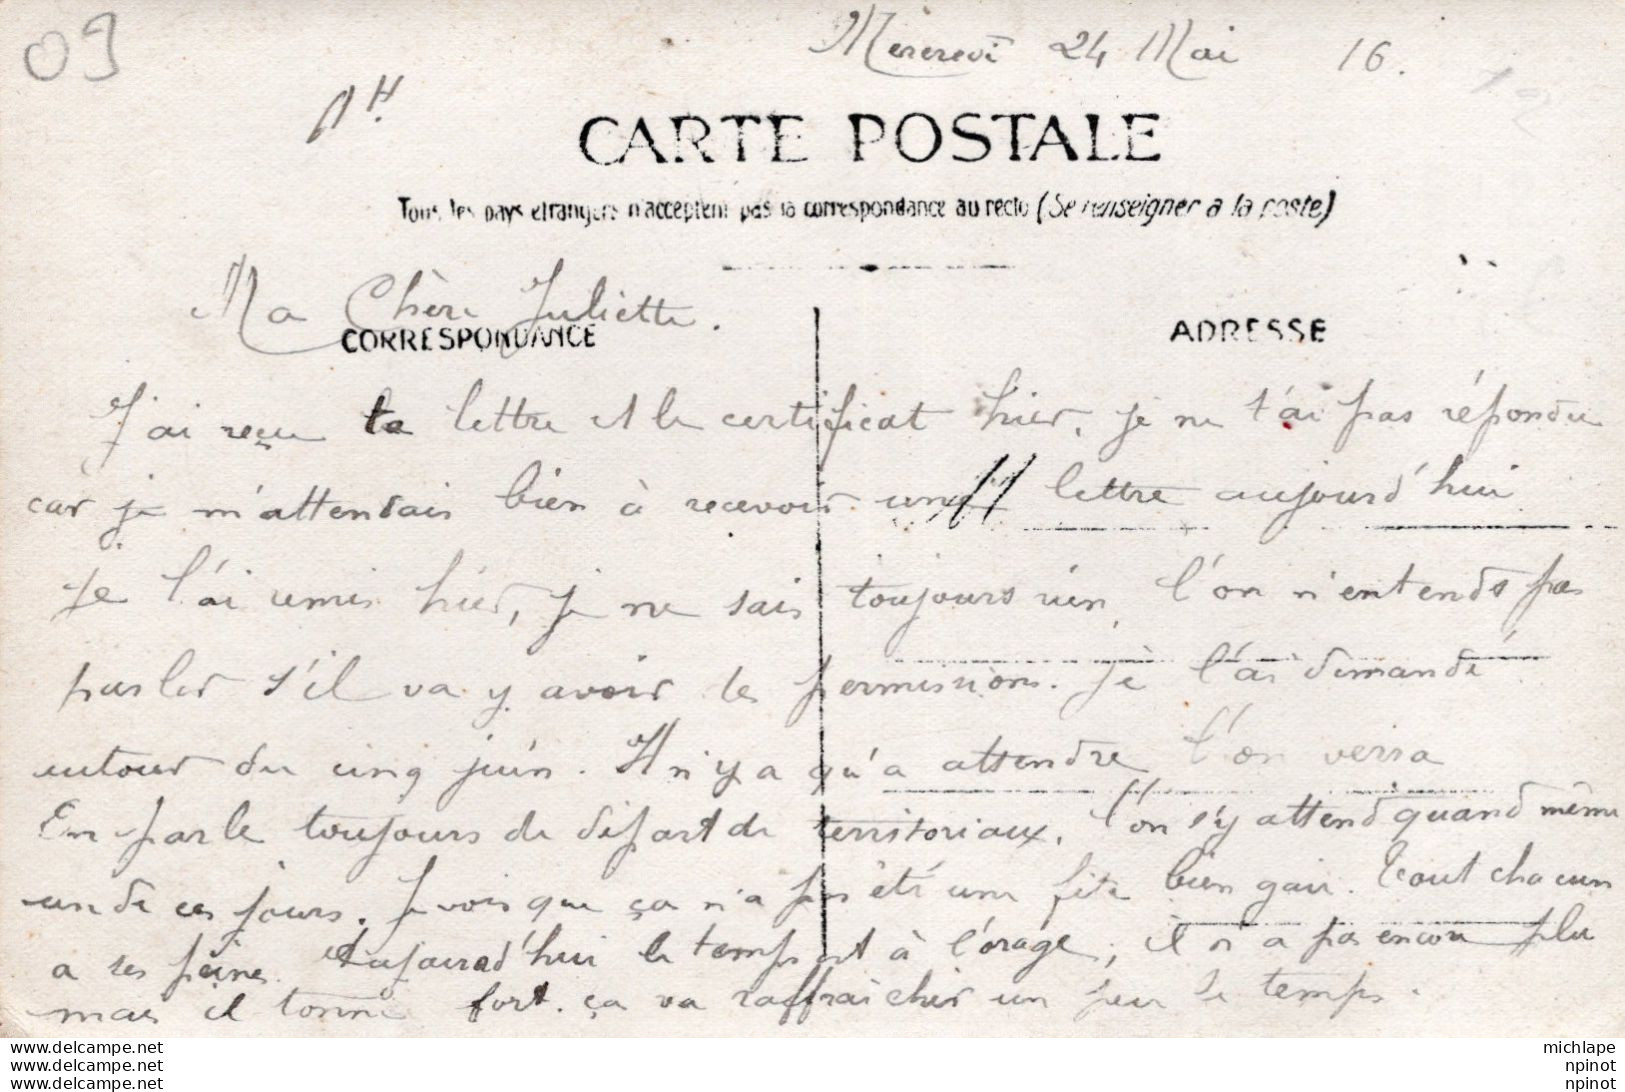 09
Mercredi 24 Mai 16.
CARTE POSTALE
Tous les pays étrangers n'acceptent pas la correspondance au recto (Se renseigner a la poste)
Ma Chère Juliette.
CORRESPONDANCE
ADRESSE
J'ai reçu ta lettre et le certificat hier, je ne t'ai pas répondu
car je m'attendais bien à recevoir une lettre aujourd'hui
Je l'ai remis hier, je ne sais toujours rien, l'on n'entends pas
parler s'il va y avoir des permissions. Je l'ai demandé
autour du cinq juin. Il n'y a qu'a attendre l'on verra
En parle toujours du départ de territoriaux, l'on s'y attend quand même
un de ces jours. Je vois que ça n'a pas été une fête bien gaie. Tout chacun
a ses peines. Aujourd'hui le temps est à l'orage, il n'a pas encore plu
mais il tonne fort. ça va raffraichir un peu le temps.
www.delcampe.net
www.delcampe.net
www.delcampe.net
michlape
npinot
npinot